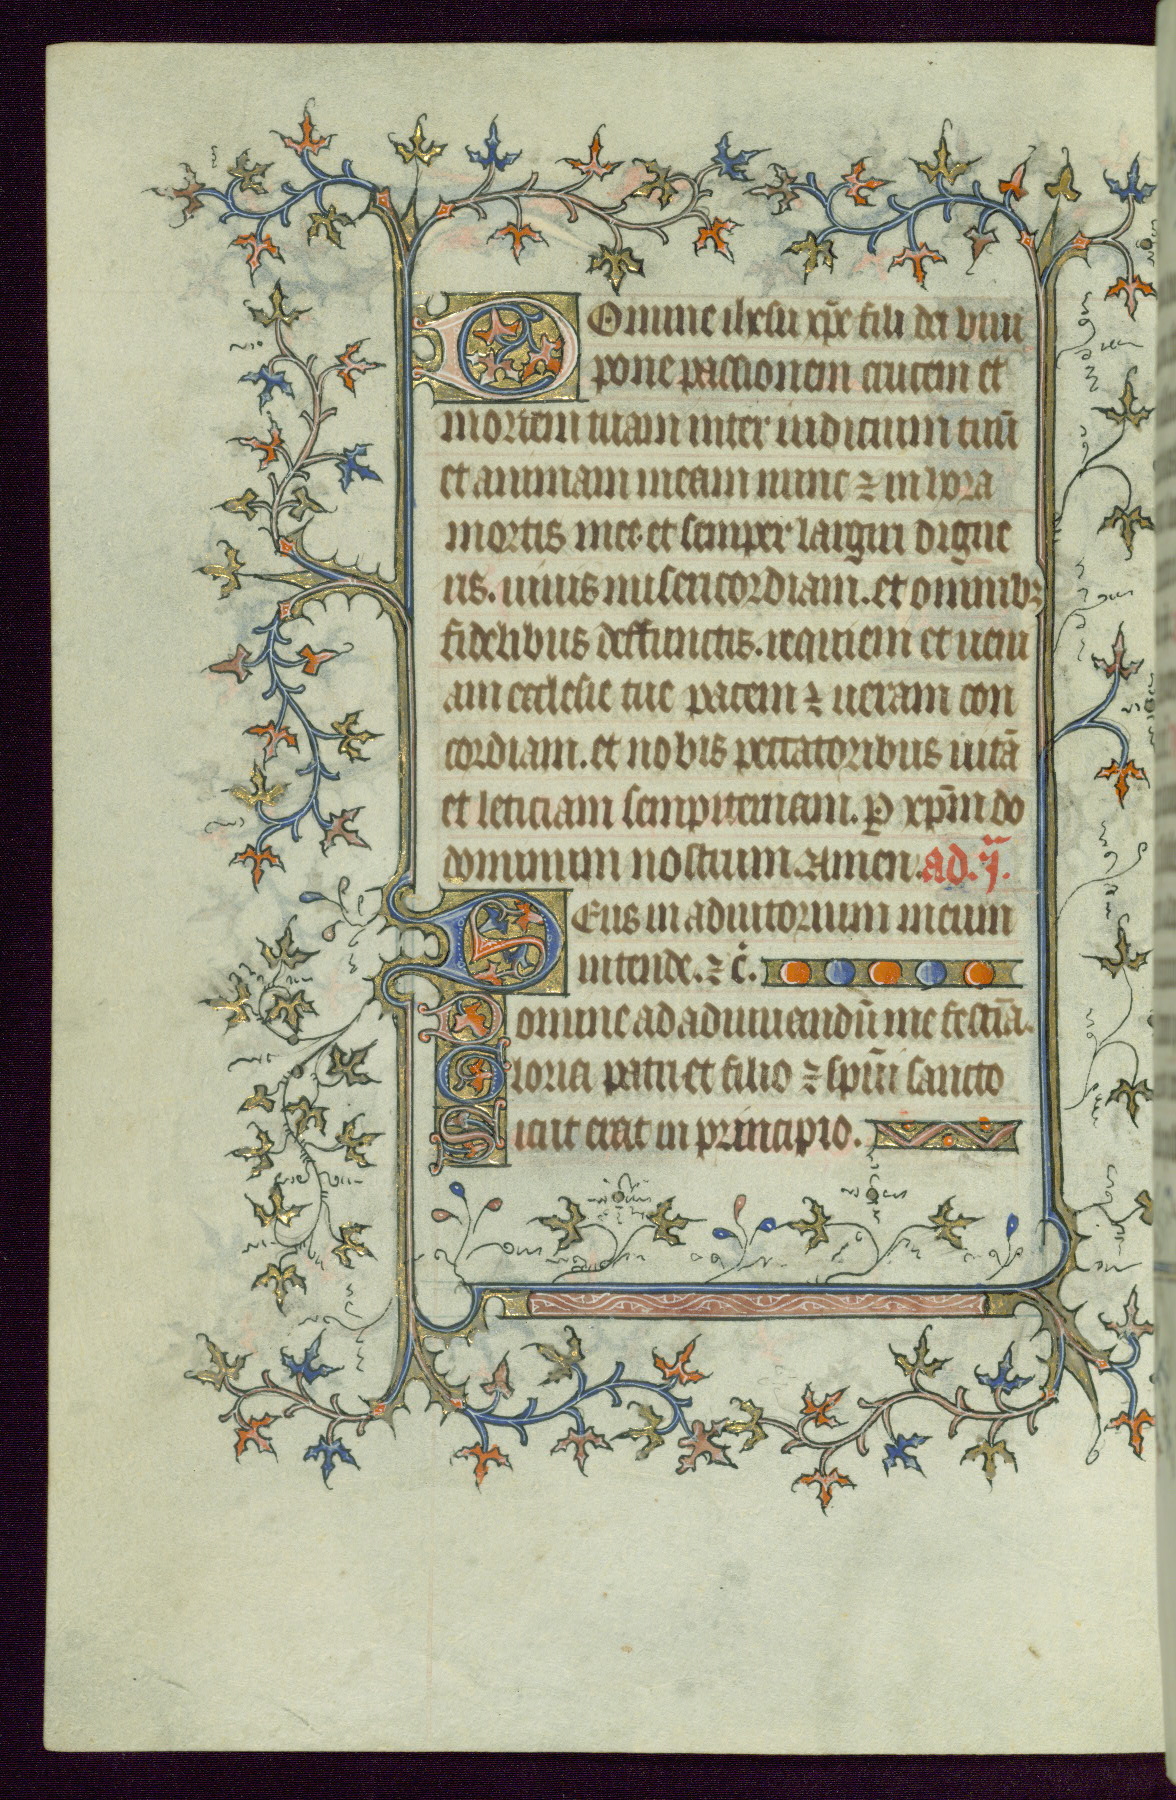 Domine ihesu xp̄e fili dei viui
pone passionem crucem et
mortem tuam inter iudicium tuū
et animam meam nunc ⁊ in hora
mortis mee. et semper largiri digne
ris. uiuis misericordiam. et omnibꝫ
fidelibus deffunctis. requiem et ueni
am ecclesie tue pacem ⁊ ueram con
cordiam. et nobis peccatoribus uitā
et leticiam sempiternam. ꝑ xp̄m do
dominum nostrum. amen. ad .j̄.
Deus in adiutorium meum
intende. ⁊ c̄.
Domine ad adiuuandū me festīa.
Gloria patri et filio ⁊ spūi sancto
Sicut erat in principio.